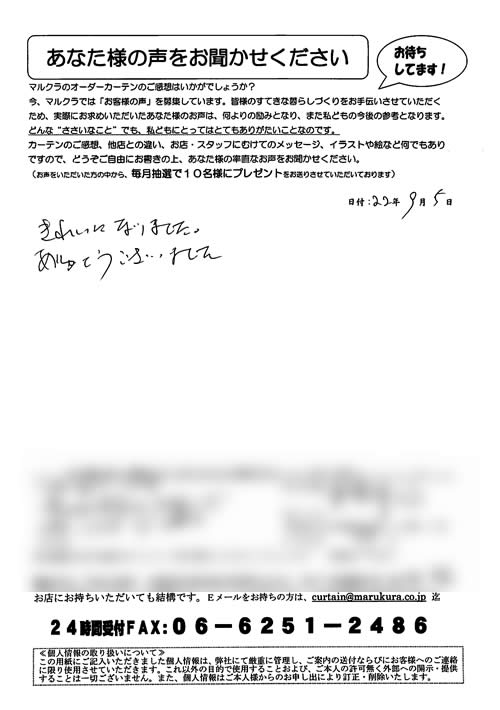 あなた様の声をお聞かせください
お待ち
してます！
マルクラのオーダーカーテンのご感想はいかがでしょうか？
今、マルクラでは「お客様の声」を募集しています。皆様のすてきな暮らしづくりをお手伝いさせていただく
ため、実際にお求めいただいたあなた様のお声は、何よりの励みとなり、また私どもの今後の参考となります。
どんな“ささいなこと”でも、私どもにとってはとてもありがたいことなのです。
カーテンのご感想、他店との違い、お店・スタッフにむけてのメッセージ、イラストや絵など何でもあり
ですので、どうぞご自由にお書きの上、あなた様の率直なお声をお聞かせください。
（お声をいただいた方の中から、毎月抽選で１０名様にプレゼントをお送りさせていただいております）
日付：22年 9月 5日
きれいになりました。
ありがとうございました
お店にお持ちいただいても結構です。Ｅメールをお持ちの方は、curtain@marukura.co.jp 迄
２４時間受付ＦＡＸ：０６－６２５１－２４８６
≪個人情報の取り扱いについて≫
この用紙にご記入いただきました個人情報は、弊社にて厳重に管理し、ご案内の送付ならびにお客様へのご連絡
に限り使用させていただきます。これ以外の目的で使用することおよび、ご本人の許可無く外部への開示・提供
することは一切ございません。また、個人情報はご本人様からのお申し出により訂正・削除いたします。